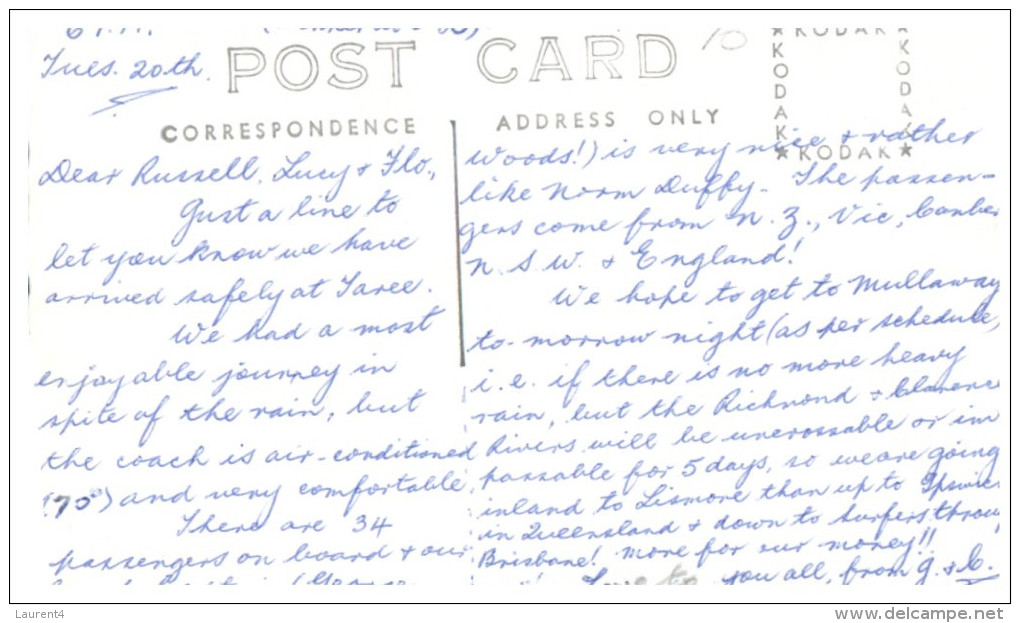 Tues. 20th.
POST CARD
10
CORRESPONDENCE
ADDRESS ONLY
★ KODAK ★
KODAK
KODAK
★ KODAK ★
Dear Russell, Lucy & Flo.,
Just a line to
let you know we have
arrived safely at Taree.
We had a most
enjoyable journey in
spite of the rain, but
the coach is air-conditioned
(70°) and very comfortable.
There are 34
passengers on board & our
woods!) is very nice & rather
like Norm Duffy. The passen-
gers come from N.Z., Vic, Canber
N.S.W. & England!
We hope to get to Mullaway
to-morrow night (as per schedule,
i.e. if there is no more heavy
rain, but the Richmond & Clarence
Rivers will be uncrossable or im
passable for 5 days, so we are going
inland to Lismore than up to Ipswic
in Queensland & down to Surfers throu
Brisbane! More for our money!!
Love to you all, from G. & C.
Laurent4
www.delcampe.net